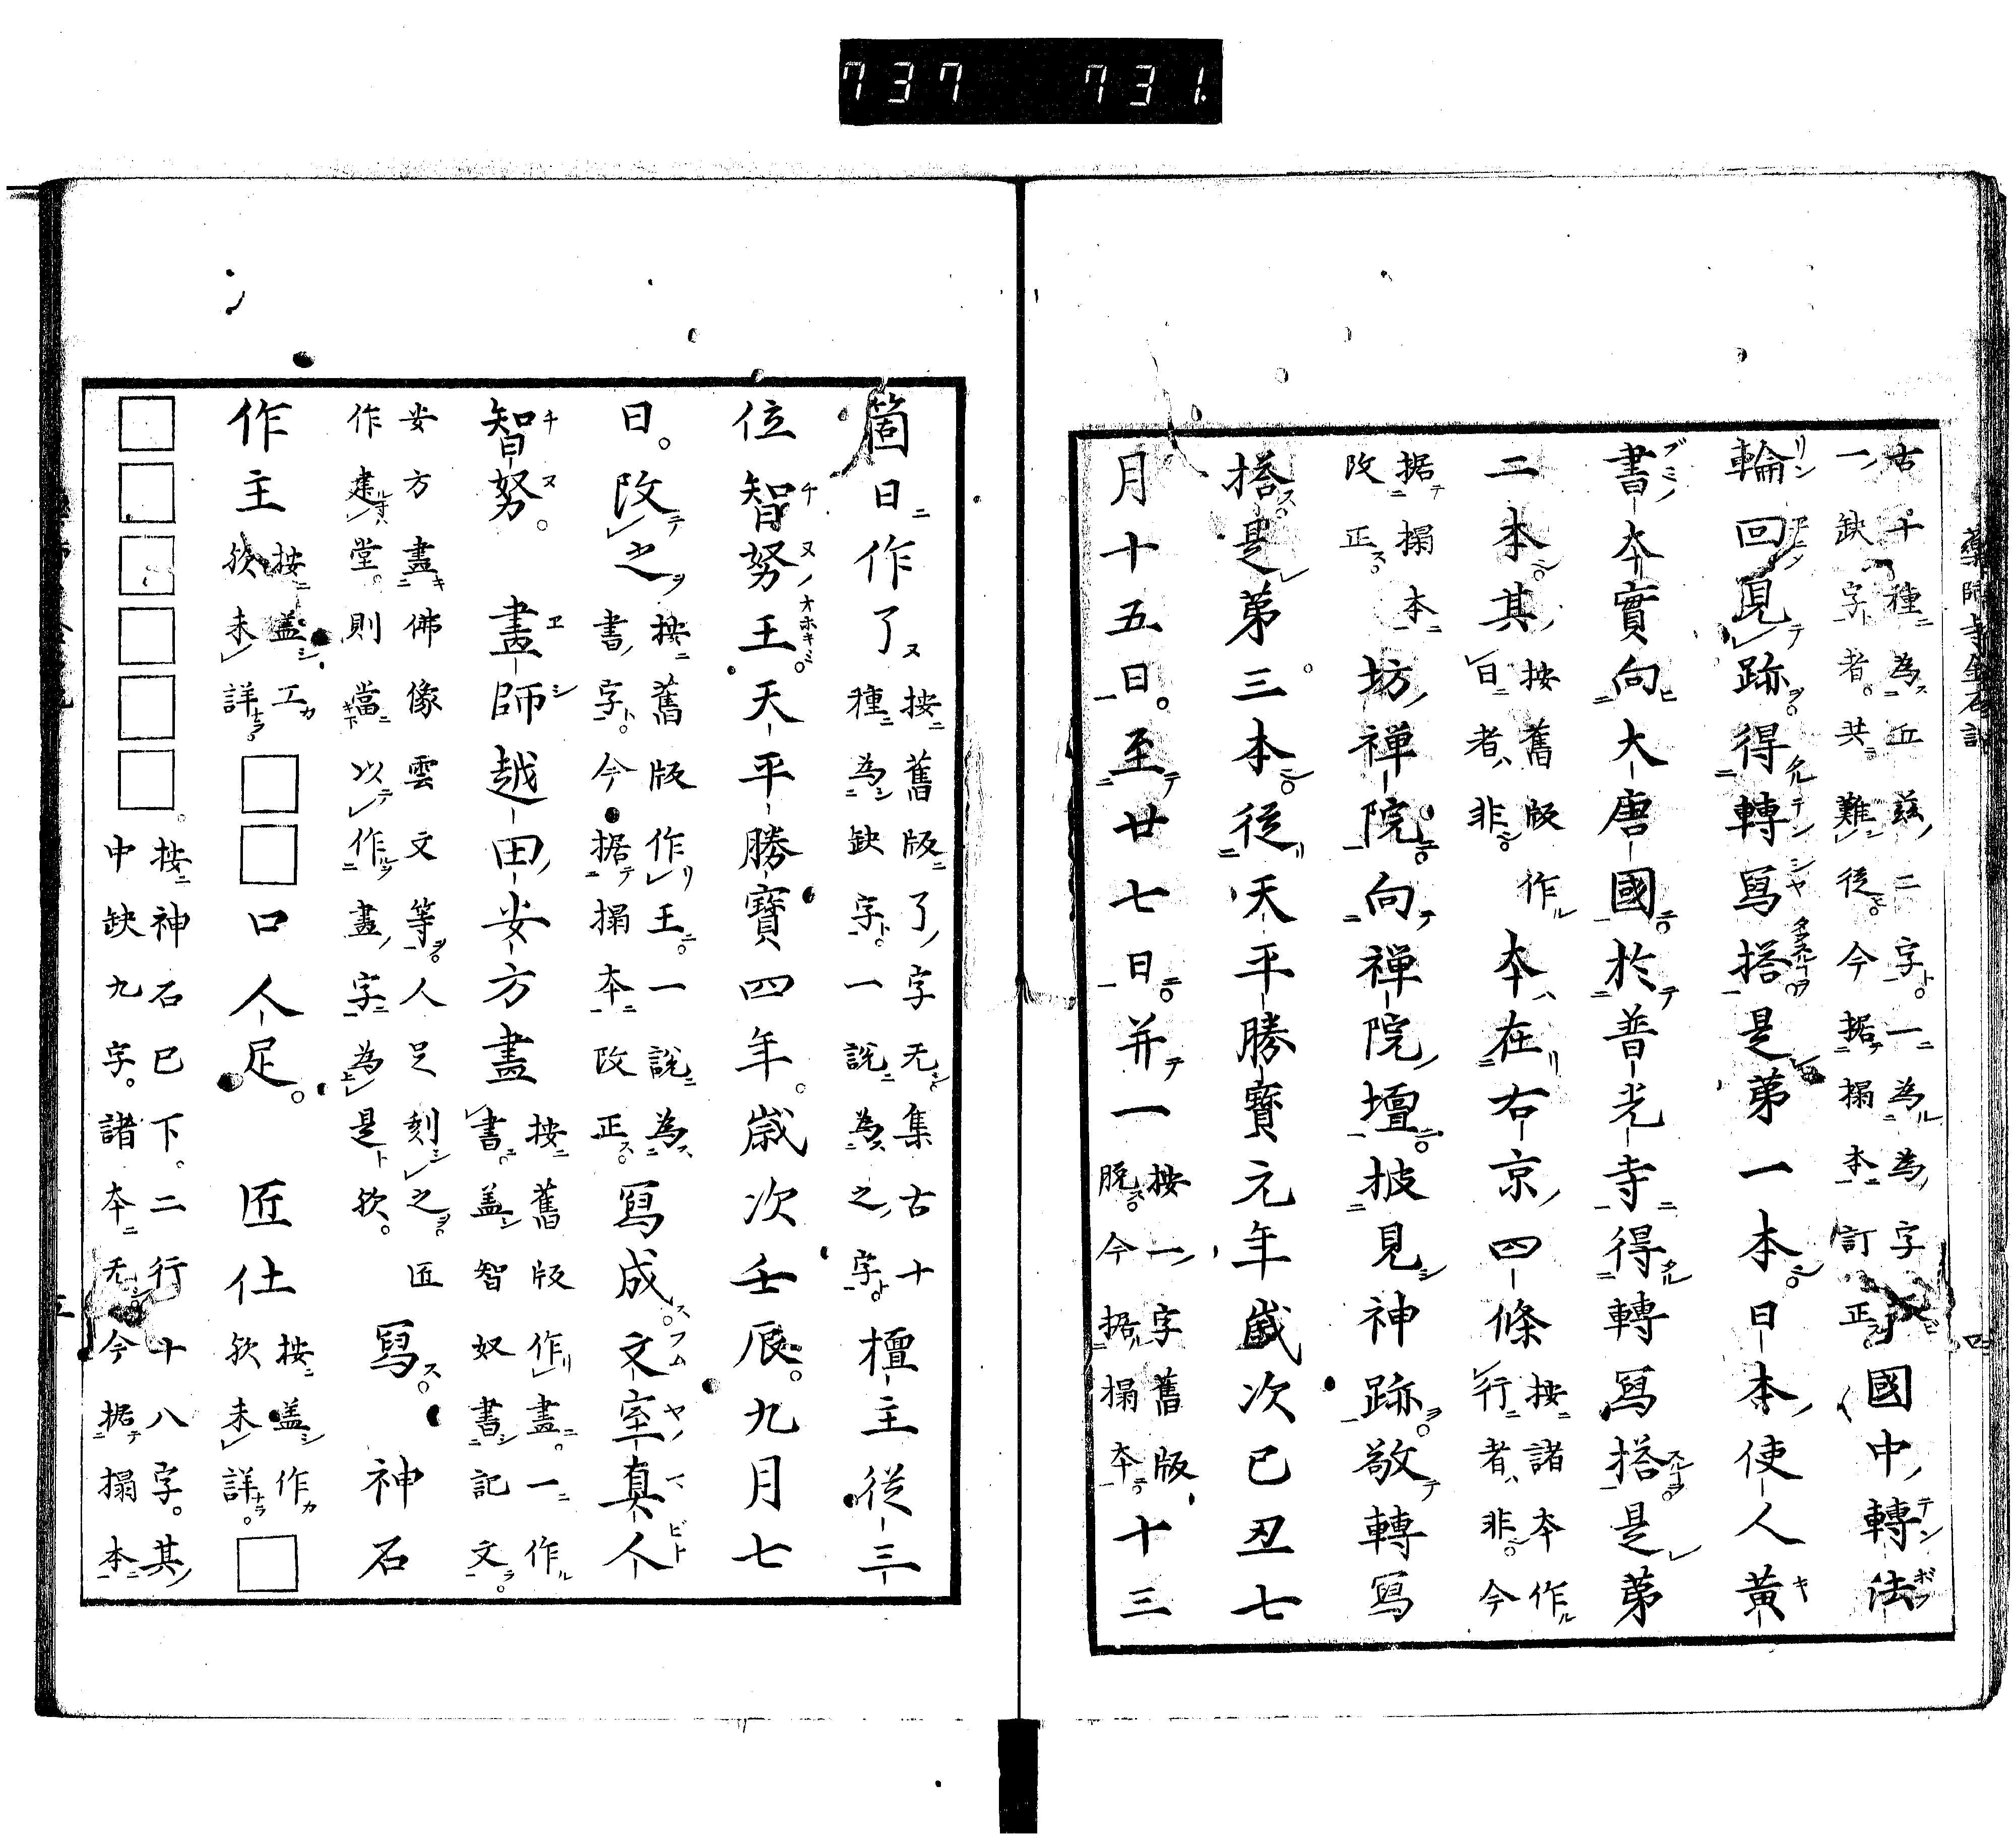 737 731.
古十種為丘茲二字一為為字
一缺字者共難從今据搨本訂正
國中轉法
輪回見跡得轉寫搭是第一本日本使人黃
書本實向大唐國於普光寺得轉寫搭是第
二本其
按舊版作
白者非
本在右京四條
按諸本作
行者非今
据搨本
改正
坊禅院向禅院壇披見神跡敬轉寫
搭是第三本從天平勝寶元年歲次己丑七
月十五日至廿七日并一
按一字舊版
脱今据搨本
十三
箇日作了
按舊版了字无集古十
種為缺字一說為之字
檀主從三
位智努王天平勝寶四年歲次壬辰九月七
日改之
按舊版作王一說為
書字今据搨本改正
寫成文室真人
智努畫師越田安方畫
按舊版作畫一作
書蓋智奴書記文
安方畫佛像雲文等人足刻之匠
作建堂則當以作畫字為是欤
寫神石
作主
按蓋工
欤未詳
□□口人足匠仕
按蓋作
欤未詳
□
□□□□□□
按神石已下二行十八字其
中缺九字諸本无今据搨本